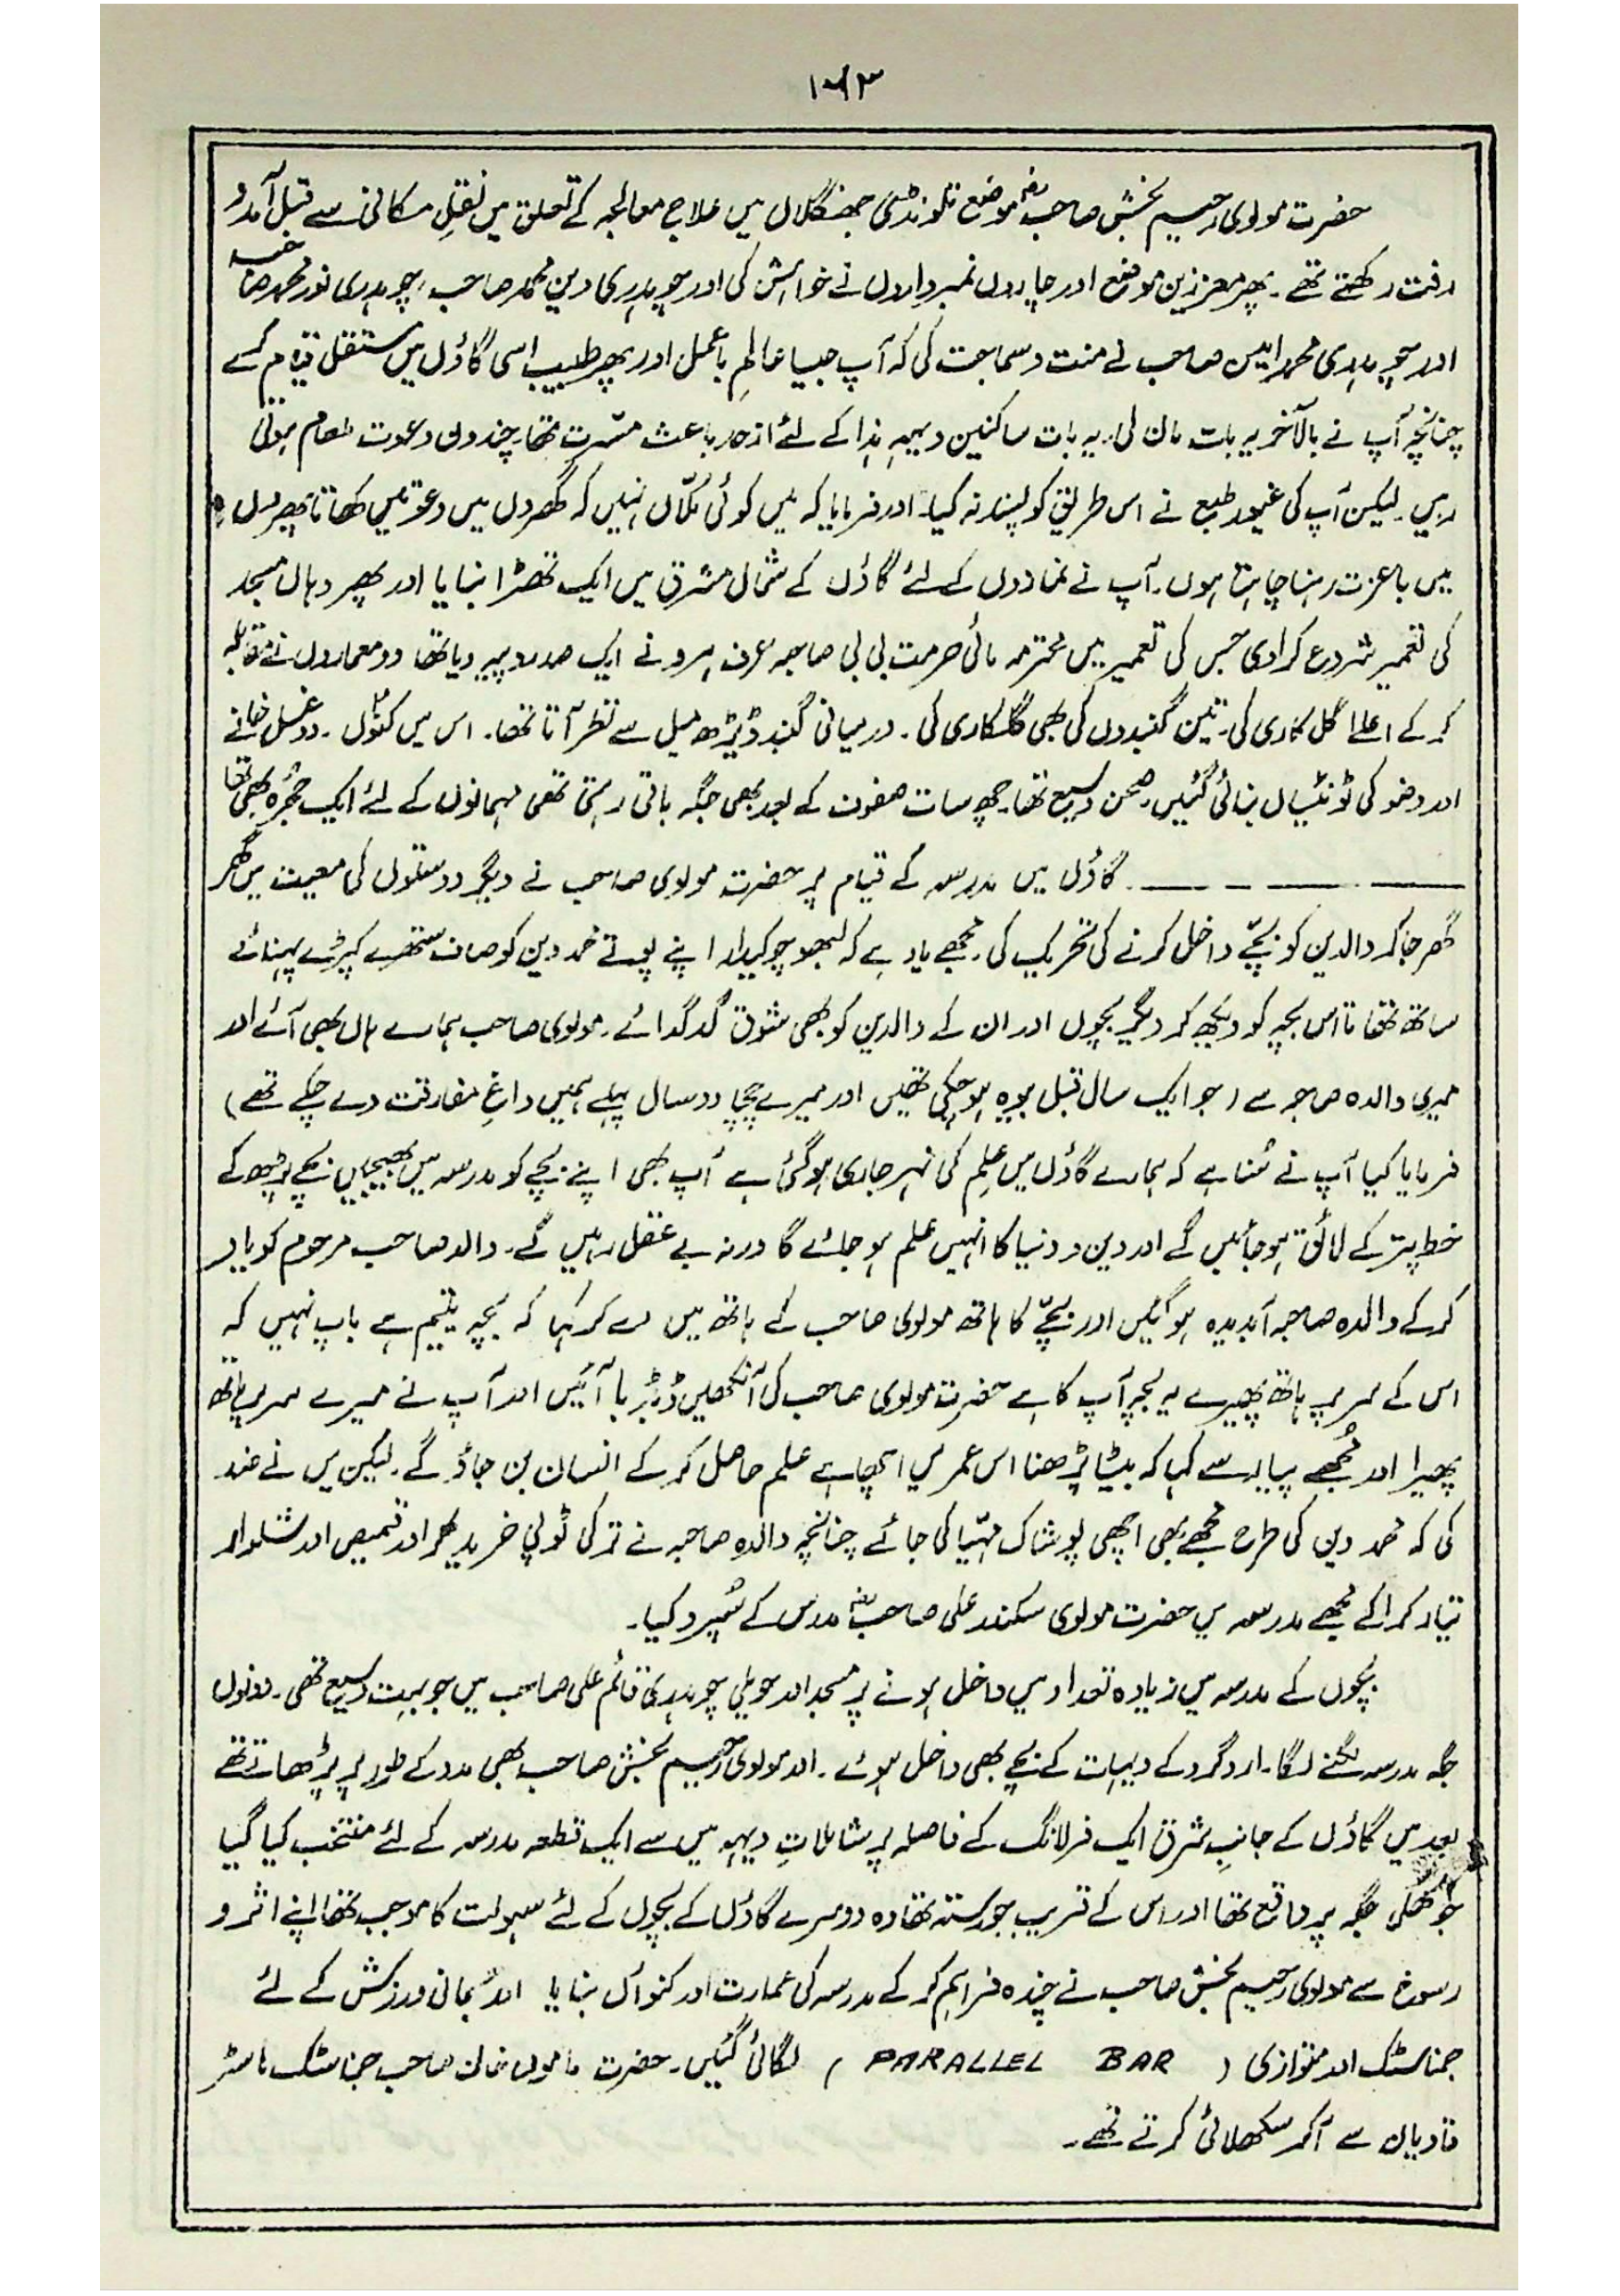 ۱۶۳
حضرت مولوی رحیم بخش صاحبؓ موضع تلونڈی جھنگلاں میں علاج معالجہ کے تعلق میں نقلِ مکانی سے قبل آمد و
رفت رکھتے تھے۔ پھر معززین موضع اور چاروں نمبرداروں نے خواہش کی اور چوہدری دین محمد صاحب، چوہدری نور محمد صاحب
اور چوہدری محمد امین صاحب نے منت و سماجت کی کہ آپ جیسا عالمِ باعمل اور پھر طبیب اسی گاؤں میں مستقل قیام کرے
چنانچہ آپ نے بالآخر یہ بات مان لی۔ یہ بات ساکنین دیہہ ہذا کے لئے ازحد باعث مسّرت تھا۔ چند دن دعوت طعام ہوتی
رہیں۔ لیکن آپ کی غیور طبع نے اس طریق کو پسند نہ کیا۔ اور فرمایا کہ میں کوئی مُلّاں نہیں کہ گھروں میں دعوتیں کھاتا پھروں
میں باعزت رہنا چاہتا ہوں۔ آپ نے نمازوں کے لئے گاؤں کے شمال مشرق میں ایک تھڑا بنایا اور پھر وہاں مسجد
کی تعمیر شروع کرا دی جس کی تعمیر میں محترمہ مائی حرمت بی بی صاحبہ عرف ہرو نے ایک صد روپیہ دیا تھا دو معماروں نے مقابلہ
کر کے اعلےٰ گل کاری کی۔ تین گنبدوں کی بھی گلکاری کی۔ درمیانی گنبد ڈیڑھ میل سے نظر آتا تھا۔ اس میں کنواں۔ دو غسل خانے
اور وضو کی ٹونٹیاں بنائی گئیں۔ صحن وسیع تھا۔ چھ سات صفوں کے بعد بھی جگہ باقی رہتی تھی مہمانوں کے لئے ایک حُجرہ بھی تھا
ـــــــ ـــــــ ـ ـــــــ۔ گاؤں میں مدرسہ کے قیام پر حضرت مولوی صاحب نے دیگر دوستوں کی معیت میں گھر
گھر جا کر والدین کو بچّے داخل کرنے کی تحریک کی۔ مجھے یاد ہے کہ لبھو چوکیدار اپنے پوتے خمد دین کو صاف ستھرے کپڑے پہنائے
ساتھ تھا تا اس بچہ کو دیکھ کر دیگر بچوں اور ان کے والدین کو بھی شوق گدگدائے۔ مولوی صاحب ہمارے ہاں بھی آئے اور
میری والدہ صاحبہ سے (جو ایک سال قبل بیوہ ہو چکی تھیں اور میرے چچا دو سال پہلے ہمیں داغِ مفارقت دے چکے تھے)
فرمایا کیا آپ نے سُنا ہے کہ ہمارے گاؤں میں علم کی نہر جاری ہو گئی ہے آپ بھی اپنے بچے کو مدرسہ میں بھیجیں بچے پڑھ کے
خط پتر کے لائق ہو جائیں گے اور دین و دنیا کا انہیں علم ہو جائے گا ورنہ بے عقل رہیں گے۔ والد صاحب مرحوم کو یاد
کر کے والدہ صاحبہ آبدیدہ ہو گئیں اور بچّے کا ہاتھ مولوی صاحب کے ہاتھ میں دے کر کہا کہ بچہ یتیم ہے باپ نہیں کہ
اس کے سر پر ہاتھ پھیرے یہ بچہ آپ کا ہے حضرت مولوی صاحب کی آنکھیں ڈبڈبا آئیں اور آپ نے میرے سر پر ہاتھ
پھیرا اور مُجھے پیار سے کہا کہ بیٹا پڑھنا اس عمر میں اچھا ہے علم حاصل کر کے انسان بن جاؤ گے۔ لیکن میں نے ضد
کی کہ خمد دین کی طرح مجھے بھی اچھی پوشاک مہّیا کی جائے چنانچہ والدہ صاحبہ نے ترکی ٹوپی خرید کر اور قمیص اور شلوار
تیار کرا کے مجھے مدرسہ میں حضرت مولوی سکندر علی صاحبؓ مدرس کے سُپرد کیا۔
بچوں کے مدرسہ میں زیادہ تعداد میں داخل ہونے پر مسجد اور حویلی چوہدری قائم علی صاحب میں جو بہت وسیع تھی۔ دونوں
جگہ مدرسہ لگنے لگا۔ ارد گرد کے دیہات کے بچے بھی داخل ہوئے۔ اور مولوی رحیم بخش صاحب بھی مدد کے طور پر پڑھاتے تھے
بعد میں گاؤں کے جانبِ مشرق ایک فرلانگ کے فاصلہ پر شاملاتِ دیہہ میں سے ایک قطعہ مدرسہ کے لئے منتخب کیا گیا
جو کھلی جگہ پر واقع تھا اور اس کے قریب جو رستہ تھا وہ دوسرے گاؤں کے بچوں کے لئے سہولت کا موجب تھا اپنے اثر و
رسوخ سے مولوی رحیم بخش صاحب نے چندہ فراہم کر کے مدرسہ کی عمارت اور کنواں بنایا اور جسمانی ورزش کے لئے
جمناسٹک اور متوازی ( PARALLEL BAR ) لگائی گئیں۔ حضرت ماموں خان صاحب جمناسٹک ماسٹر
قادیان سے آکر سکھلائی کرتے تھے۔